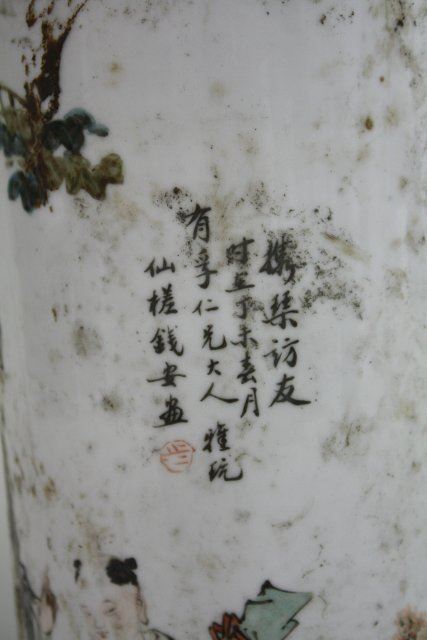 携琴访友
时在丁未春月
有孚仁兄大人雅玩
仙槎錢安画